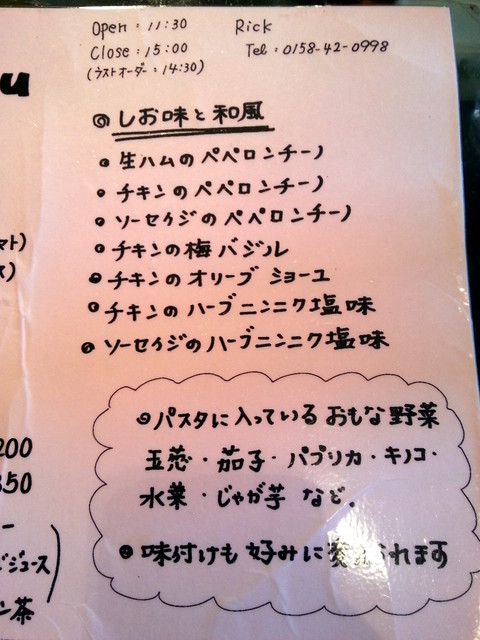 Open : 11:30 Rick
Close : 15:00 Tel : 0158-42-0998
(ラストオーダー : 14:30)
u
◎しお味と和風
・生ハムのペペロンチーノ
・チキンのペペロンチーノ
・ソーセイジのペペロンチーノ
・チキンの梅バジル
・チキンのオリーブショーユ
・チキンのハーブニンニク塩味
・ソーセイジのハーブニンニク塩味
マト)
ス)
◎パスタに入っているおもな野菜
玉葱・茄子・パプリカ・キノコ・
水菜・じゃが芋 など。
・味付けも好みに変えられます
200
350
ー
ジュース
ン茶